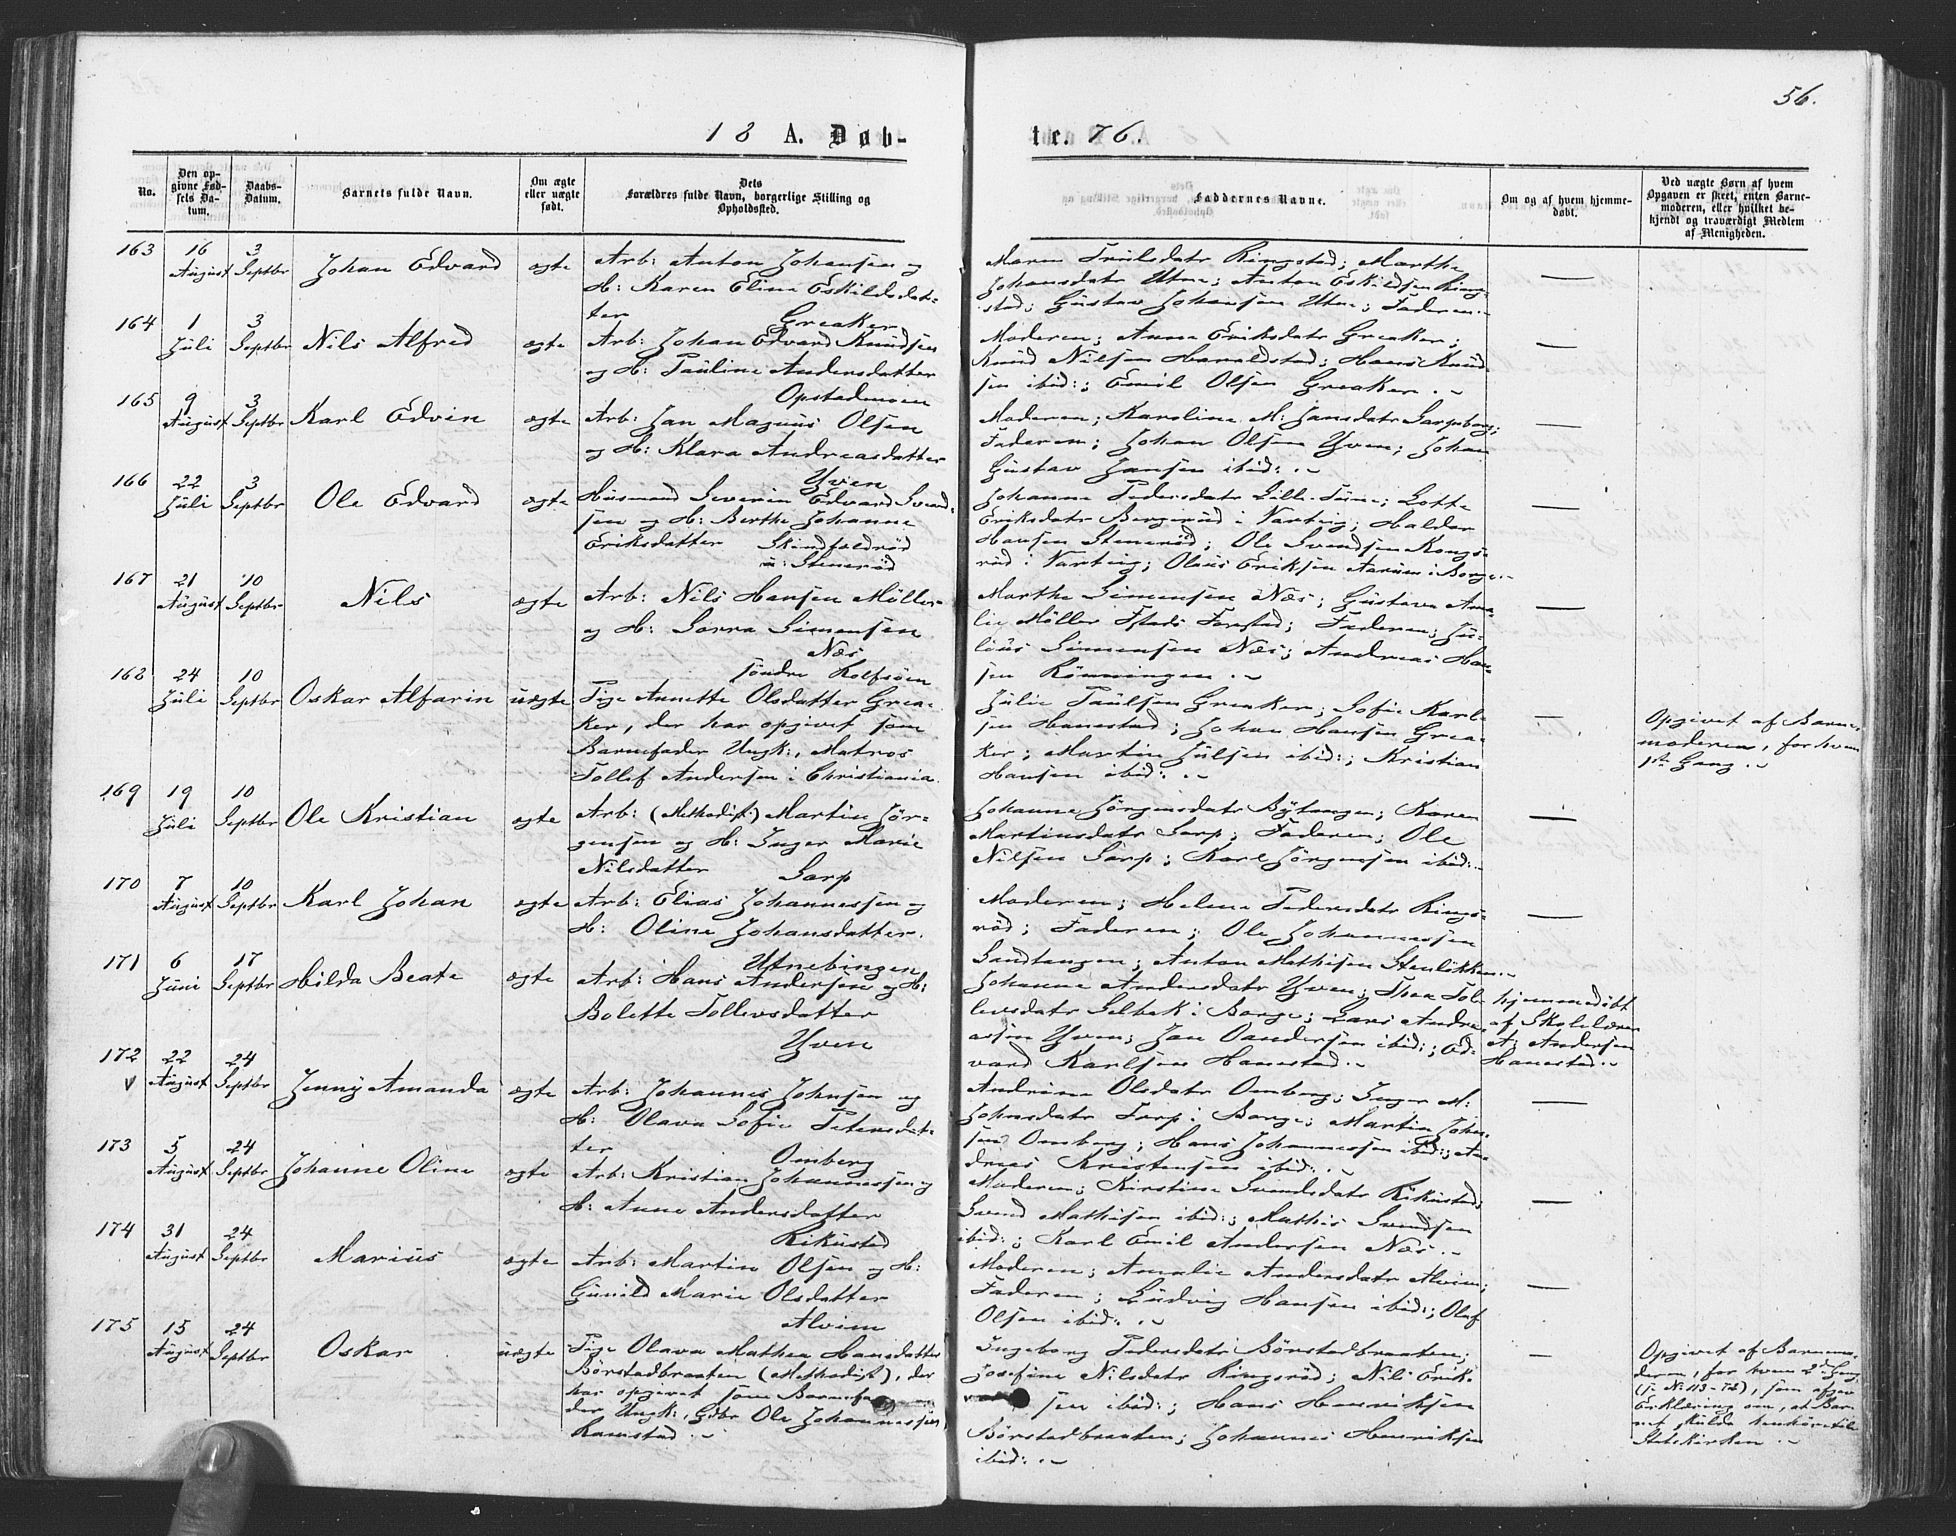 56.
18 A. Døb-
te. 76.
No.
Den op-
givne Fød-
sels Da-
tum.
Daabs-
Datum.
Barnets fulde Navn.
Om ægte
eller uægte
født.
Dets
Forældres fulde Navn, borgerlige Stilling og
Opholdssted.
Faddernes Navne.
Om og af hvem hjemme-
døbt.
Ved uægte Børn af hvem
Opgaven er skeet, enten Barne-
moderen, eller hvilket be-
kjendt og troværdigt Medlem
af Menigheden.
163
16
August
3
Septbr
Johan Edvard
ægte
Arb: Anton Johansen og
H: Karen Eline Eskildsdat-
ter Greaker
Maren Trulsdatr Ringstad; Marthe
Johansdatr Utne; Anton Eskildsen Ring-
stad; Gustav Johansen Utne; Faderen.
—
164
1
Juli
3
Septbr
Nils Alfred
ægte
Arb: Johan Edvard Knudsen
og H: Pauline Andersdatter
Opstadmoen
Moderen; Anne Eriksdatr Greaker;
Knud Nilsen Haraldstad; Hans Knud-
sen ibid:; Emil Olsen Greaker.
—
165
9
August
3
Septbr
Karl Edvin
ægte
Arb: Jan Magnus Olsen
og H: Klara Andreasdatter
Yven
Moderen; Karoline M: Jansdatr Sarpsborg;
Faderen; Johan Olsen Yven; Johan
Gustav Jansen ibid:.
—
166
22
Juli
3
Septbr
Ole Edvard
ægte
Husmand Severin Edvard Svend-
sen og H: Berthe Johanne
Eriksdatter Skindfældrød
u: Stenerød
Johanne Pedersdatr Lille-Tune; Lotte
Eriksdatr Bergerud i Varteig; Haldor
Hansen Stenerød; Ole Svendsen Kongs-
rød i Varteig; Olaus Eriksen Aarum i Borge.
—
167
21
August
10
Septbr
Nils
ægte
Arb: Nils Hansen Möller
og H: Simensen
Næs
søndre Rolfsøen
Marthe Simensen Næs; Gustava Ama-
lie Möller; Faderen; Ju-
läus Simensen Næs; Andreas Han-
sen Rönningen.
—
168
24
Juli
10
Septbr
Oskar Alfarin
uægte
Pige Annette Olsdatter Grea-
ker, der har opgivet som
Barnefader Ungk:, Matros
Tollef Andersen i Christiania.
Julie Paulsen Greaker; Sofie Karl-
sen Hanestad; Johan Hansen Grea-
ker; Martin Julsen ibid:; Kristian
Hansen ibid:.
—
Opgivet af Barne-
moderen, for hvem
1ste Gang.
169
19
Juli
10
Septbr
Ole Kristian
ægte
Arb: (Methodist) Martin Jör-
gensen og H: Inger Marie
Nilsdatter Sarp
Johanne Jörgensdatr Bytangen; Karen
Martinsdatr Sarp; Faderen; Ole
Nilsen Sarp; Karl Jörgensen ibid:.
—
170
7
August
10
Septbr
Karl Johan
ægte
Arb: Elias Johannessen og
H: Oline Johansdatter.
Utnebingen
Moderen; Helene Pedersdatr Rings-
rød; Faderen; Ole Johannessen
Sandtangen; Anton Mathisen Stenløkken.
—
171
6
Juni
17
Septbr
Hilda Beate
ægte
Arb: Hans Andersen og H:
Bolette Tollevsdatter
Yven
Johanne Andersdatr Yven; Thea Tol-
levsdatr Selbek i Borge; Lars Andre-
assen Yven; Jan Vandersen ibid:; Ed-
vard Karlsen Hanestad.
hjemmedøbt
af Skolelærer
A: Andersen
Hanestad.
172
v
22
August
24
Septbr
Jenny Amanda
ægte
Arb: Johannes Johnsen og
H: Olava Sofie Petersdat-
ter Omberg
Andrine Olsdatr Omberg; Inger M:
Johnsdatr Torp i Borge; Martin John-
sen Omberg; Hans Johannessen ibid:; An-
dreas Kristensen ibid:.
—
173
5
August
24
Septbr
Johanne Oline
ægte
Arb: Kristian Johannessen og
H: Anne Andersdatter
Rikustad
Moderen; Kirstine Svendsdatr Rikustad;
Svend Mathisen ibid:; Mathis Svendsen
ibid:; Karl Emil Andersen Næs.
—
174
31
August
24
Septbr
Marius
ægte
Arb: Martin Olsen og H:
Gunild Marie Olsdatter
Alvim
Moderen; Amalie Andersdatr Alvim;
Faderen; Ludvig Hansen ibid:; Olaf
Olsen ibid:.
—
175
15
August
24
Septbr
Oskar
uægte
Pige Olava Mathea Hansdatter
Börstadbraaten (Methodist), der
har opgivet som Barnefa-
der Ungk:, Gdbr Ole Johannessen
Ramstad.
Ingeborg Pedersdatr Börstadbraaten;
Josefine Nilsdatr Ringsrød; Nils Erik-
sen ibid:; Hans Henriksen
Börstadbraaten; Johannes Henriksen
ibid:.
—
Opgivet af Barnemo-
deren, for hvem 2den Gang,
(s. No 113-73), som afgav
Erklæring om, at Bar-
net skulde henhøre til
Statskirken.